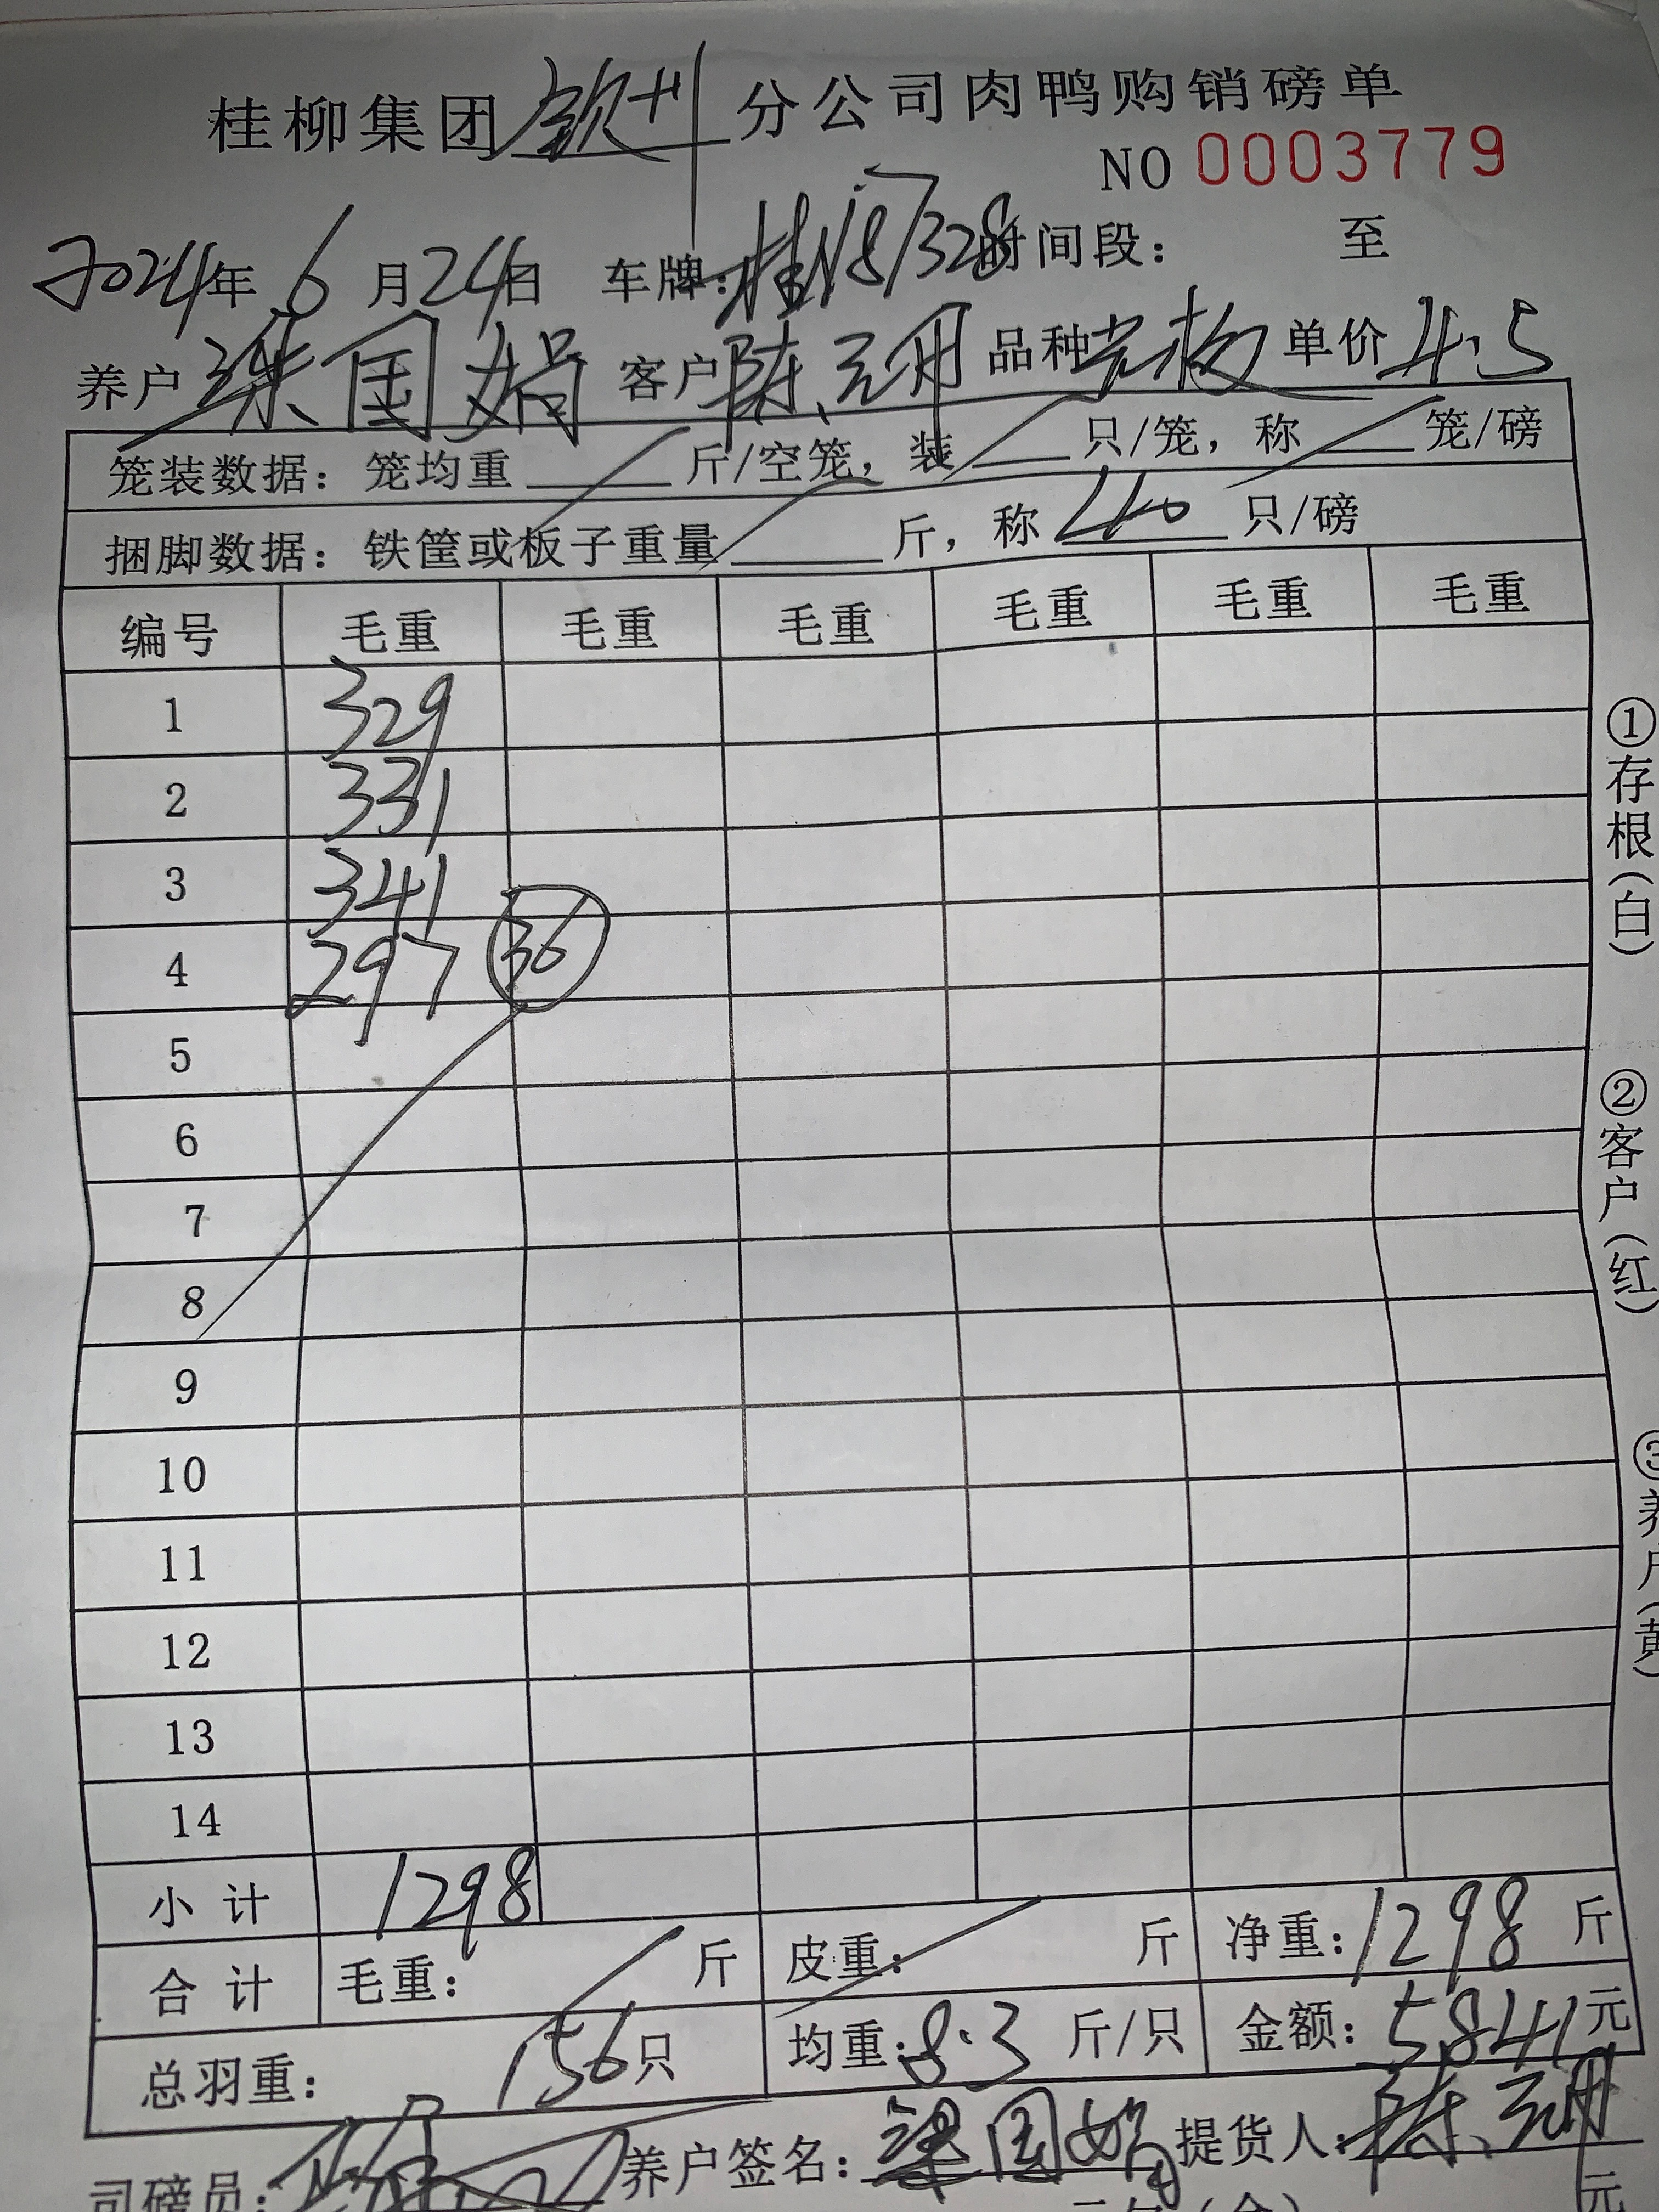 桂柳集团钦州分公司肉鸭购销磅单
NO 0003779
2024年6月24日 车牌:桂N87328时间段: 至
养户 梁国娟 客户 陈、 品种 单价 4.5
笼装数据: 笼均重 斤/空笼, 装 只/笼, 称 笼/磅
捆脚数据: 铁筐或板子重量 斤, 称 40 只/磅
编号 毛重 毛重 毛重 毛重 毛重 毛重
1 329
2 331
3 341
4 297 36
5
6
7
8
9
10
11
12
13
14
小计 1298
合计 毛重: 斤 皮重: 斤 净重:1298 斤
总羽重: 156只 均重:8.3 斤/只 金额:5841元
司磅员: 养户签名:梁国娟 提货人:陈、
元
①存根(白)
②客户(红)
③养户(黄)